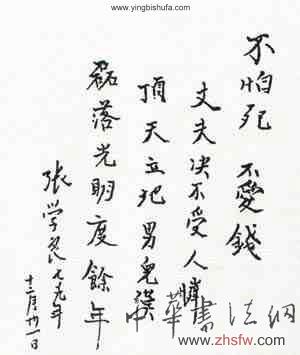 www.yingbishufa.com
不怕死 不愛錢
丈夫决不受人憐
頂天立地男兒漢
磊落光明度餘年
張学良
十二月廿一日
中華書法網
www.zhsfw.com